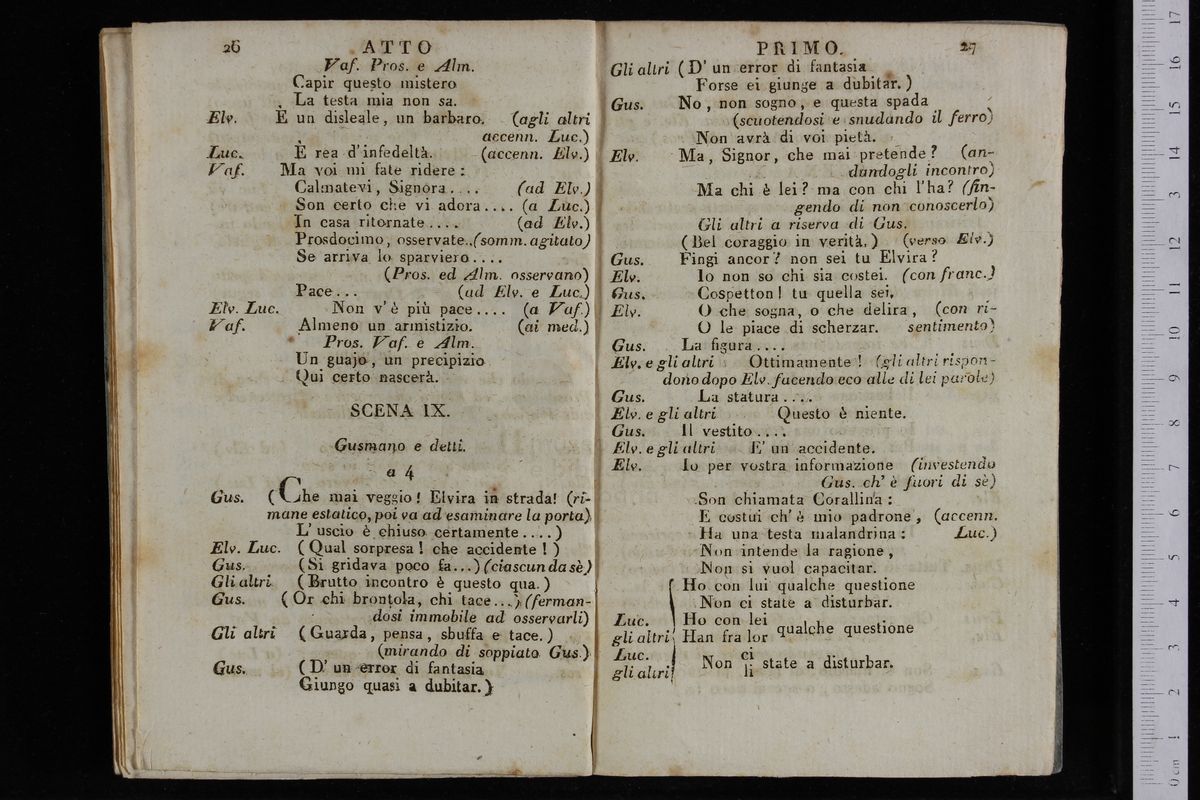 26 ATTO
Vaf. Pros. e Alm.
Capir questo mistero
La testa mia non sa.
Elv. È un disleale, un barbaro. (agli altri
accenn. Luc.)
Luc. È rea d'infedeltà. (accenn. Elv.)
Vaf. Ma voi mi fate ridere :
Calmatevi, Signora.... (ad Elv.)
Son certo che vi adora.... (a Luc.)
In casa ritornate.... (ad Elv.)
Prosdocimo, osservate..(somm. agitato)
Se arriva lo sparviero....
(Pros. ed Alm. osservano)
Pace... (ad Elv. e Luc.)
Elv. Luc. Non v'è più pace.... (a Vaf.)
Vaf. Almeno un armistizio. (ai med.)
Pros. Vaf. e Alm.
Un guajo, un precipizio
Qui certo nascerà.
SCENA IX.
Gusmano e detti.
a 4
Gus. (Che mai veggio! Elvira in strada! (ri-
mane estatico, poi va ad esaminare la porta)
L'uscio è chiuso certamente....)
Elv. Luc. (Qual sorpresa! che accidente!)
Gus. (Si gridava poco fa...) (ciascun da sè)
Gli altri (Brutto incontro è questo qua.)
Gus. (Or chi brontola, chi tace...) (ferman-
dosi immobile ad osservarli)
Gli altri (Guarda, pensa, sbuffa e tace.)
(mirando di soppiato Gus.)
Gus. (D'un error di fantasia
Giungo quasi a dubitar.)
PRIMO. 27
Gli altri (D'un error di fantasia
Forse ei giunge a dubitar.)
Gus. No, non sogno, e questa spada
(scuotendosi e snudando il ferro)
Non avrà di voi pietà.
Elv. Ma, Signor, che mai pretende? (an-
dandogli incontro)
Ma chi è lei? ma con chi l'ha? (fin-
gendo di non conoscerlo)
Gli altri a riserva di Gus.
(Bel coraggio in verità.) (verso Elv.)
Gus. Fingi ancor? non sei tu Elvira?
Elv. Io non so chi sia costei. (con franc.)
Gus. Cospetton! tu quella sei.
Elv. O che sogna, o che delira, (con ri-
O le piace di scherzar. sentimento)
Gus. La figura....
Elv. e gli altri Ottimamente! (gli altri rispon-
dono dopo Elv. facendo eco alle di lei parole)
Gus. La statura....
Elv. e gli altri Questo è niente.
Gus. Il vestito....
Elv. e gli altri E' un accidente.
Elv. Io per vostra informazione (investendo
Gus. ch'è fuori di sè)
Son chiamata Corallina:
E costui ch'è mio padrone, (accenn.
Ha una testa malandrina: Luc.)
Non intende la ragione,
Non si vuol capacitar.
Ho con lui qualche questione
Non ci state a disturbar.
Luc. Ho con lei
gli altri Han fra lor qualche questione
Luc. ci
Non state a disturbar.
gli altri li